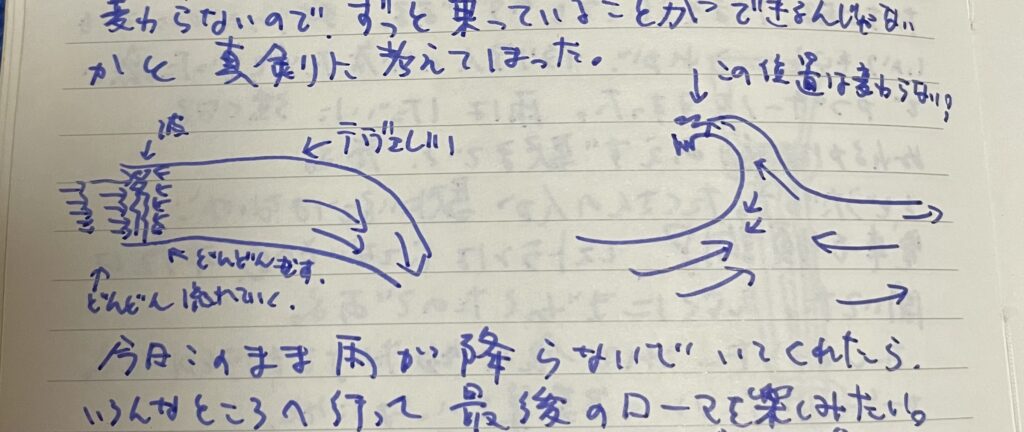 変わらないので、ずっと乗っていることがつできるんじゃない
かと真剣に考えてしまった。
↓この位置は変わらない!
波
← テヴェレ川
どんどん足す。
どんどん流れていく。
今日このまま雨が降らないでいてくれたら、
いろんなところへ行って最後のローマを楽しみたい。